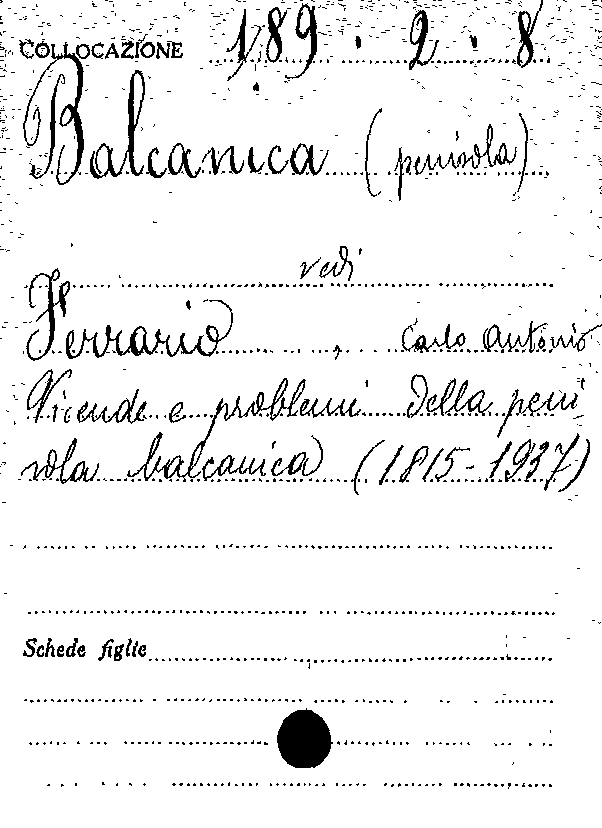 COLLOCAZIONE 189.2.8
Balcanica (penisola)
vedi
Ferrario, Carlo Antonio
Vicende e problemi della peni
sola balcanica (1815-1937)
Schede figlie